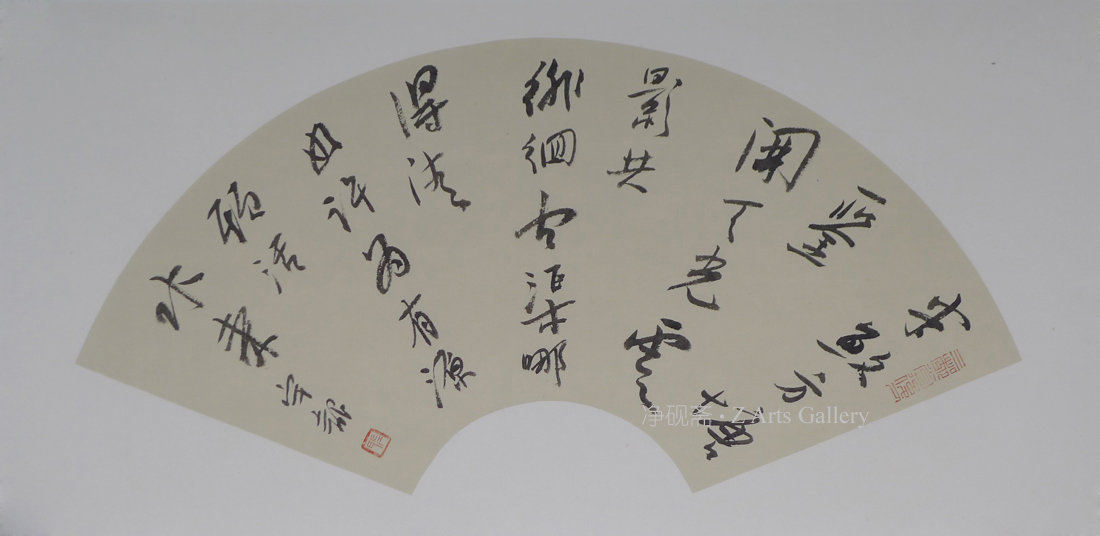 半畝方塘
一鑒
開天光雲
影共
徘徊问渠哪
得清
如许为有源
頭活
水来
净砚斋·Z Arts Gallery